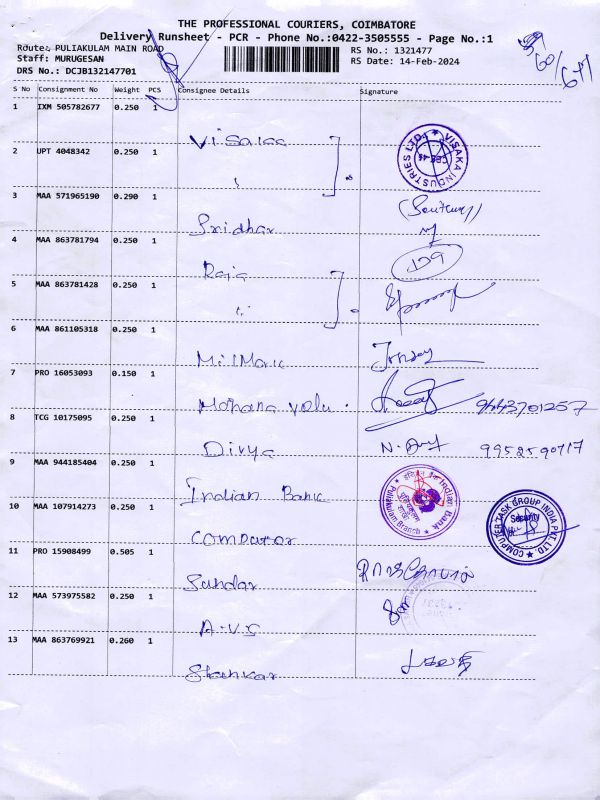 THE PROFESSIONAL COURIERS, COIMBATORE
Delivery Runsheet - PCR - Phone No.:0422-3505555 - Page No.:1
Route: PULIAKULAM MAIN ROAD
RS No.: 1321477
Staff: MURUGESAN
RS Date: 14-Feb-2024
DRS No.: DCJB132147701
59
60/
671
S No Consignment No Weight PCS Consignee Details Signature
1 IXM 505782677 0.250 1
Visaka
VISAKA INDUSTRIES LTD.
CBE-45
2 UPT 4048342 0.250 1
"
3 MAA 571965190 0.290 1
Sridhar
4 MAA 863781794 0.250 1
Raja
5 MAA 863781428 0.250 1
"
6 MAA 861105318 0.250 1
MilMark
7 PRO 16053093 0.150 1
Mohana Velu . 9443701257
8 TCG 10175095 0.250 1
Divya 9952590717
9 MAA 944185404 0.250 1
Indian Bank
इंडियन बैंक Indian Bank
Puliakulam Branch
10 MAA 107914273 0.250 1
Computor
COMPUTER TASK GROUP INDIA PVT. LTD.
Security
11 PRO 15908499 0.505 1
Sundar
12 MAA 573975582 0.250 1
A.V.S
13 MAA 863769921 0.260 1
Shankar